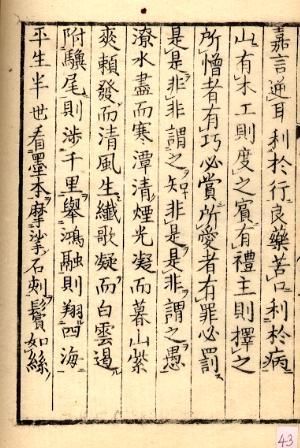 嘉言逆耳利於行良藥苦口利於病
山有木工則度之賓有禮主則擇之
所憎者有巧必賞所愛者有罪必罰
是是非非謂之知非是是非謂之愚
潦水盡而寒潭清煙光凝而暮山紫
爽籟發而清風生纖歌凝而白雲遏
附驥尾則涉千里舉鴻翮則翔四海
平生半世看墨本摩挲石刻鬢如絲
43